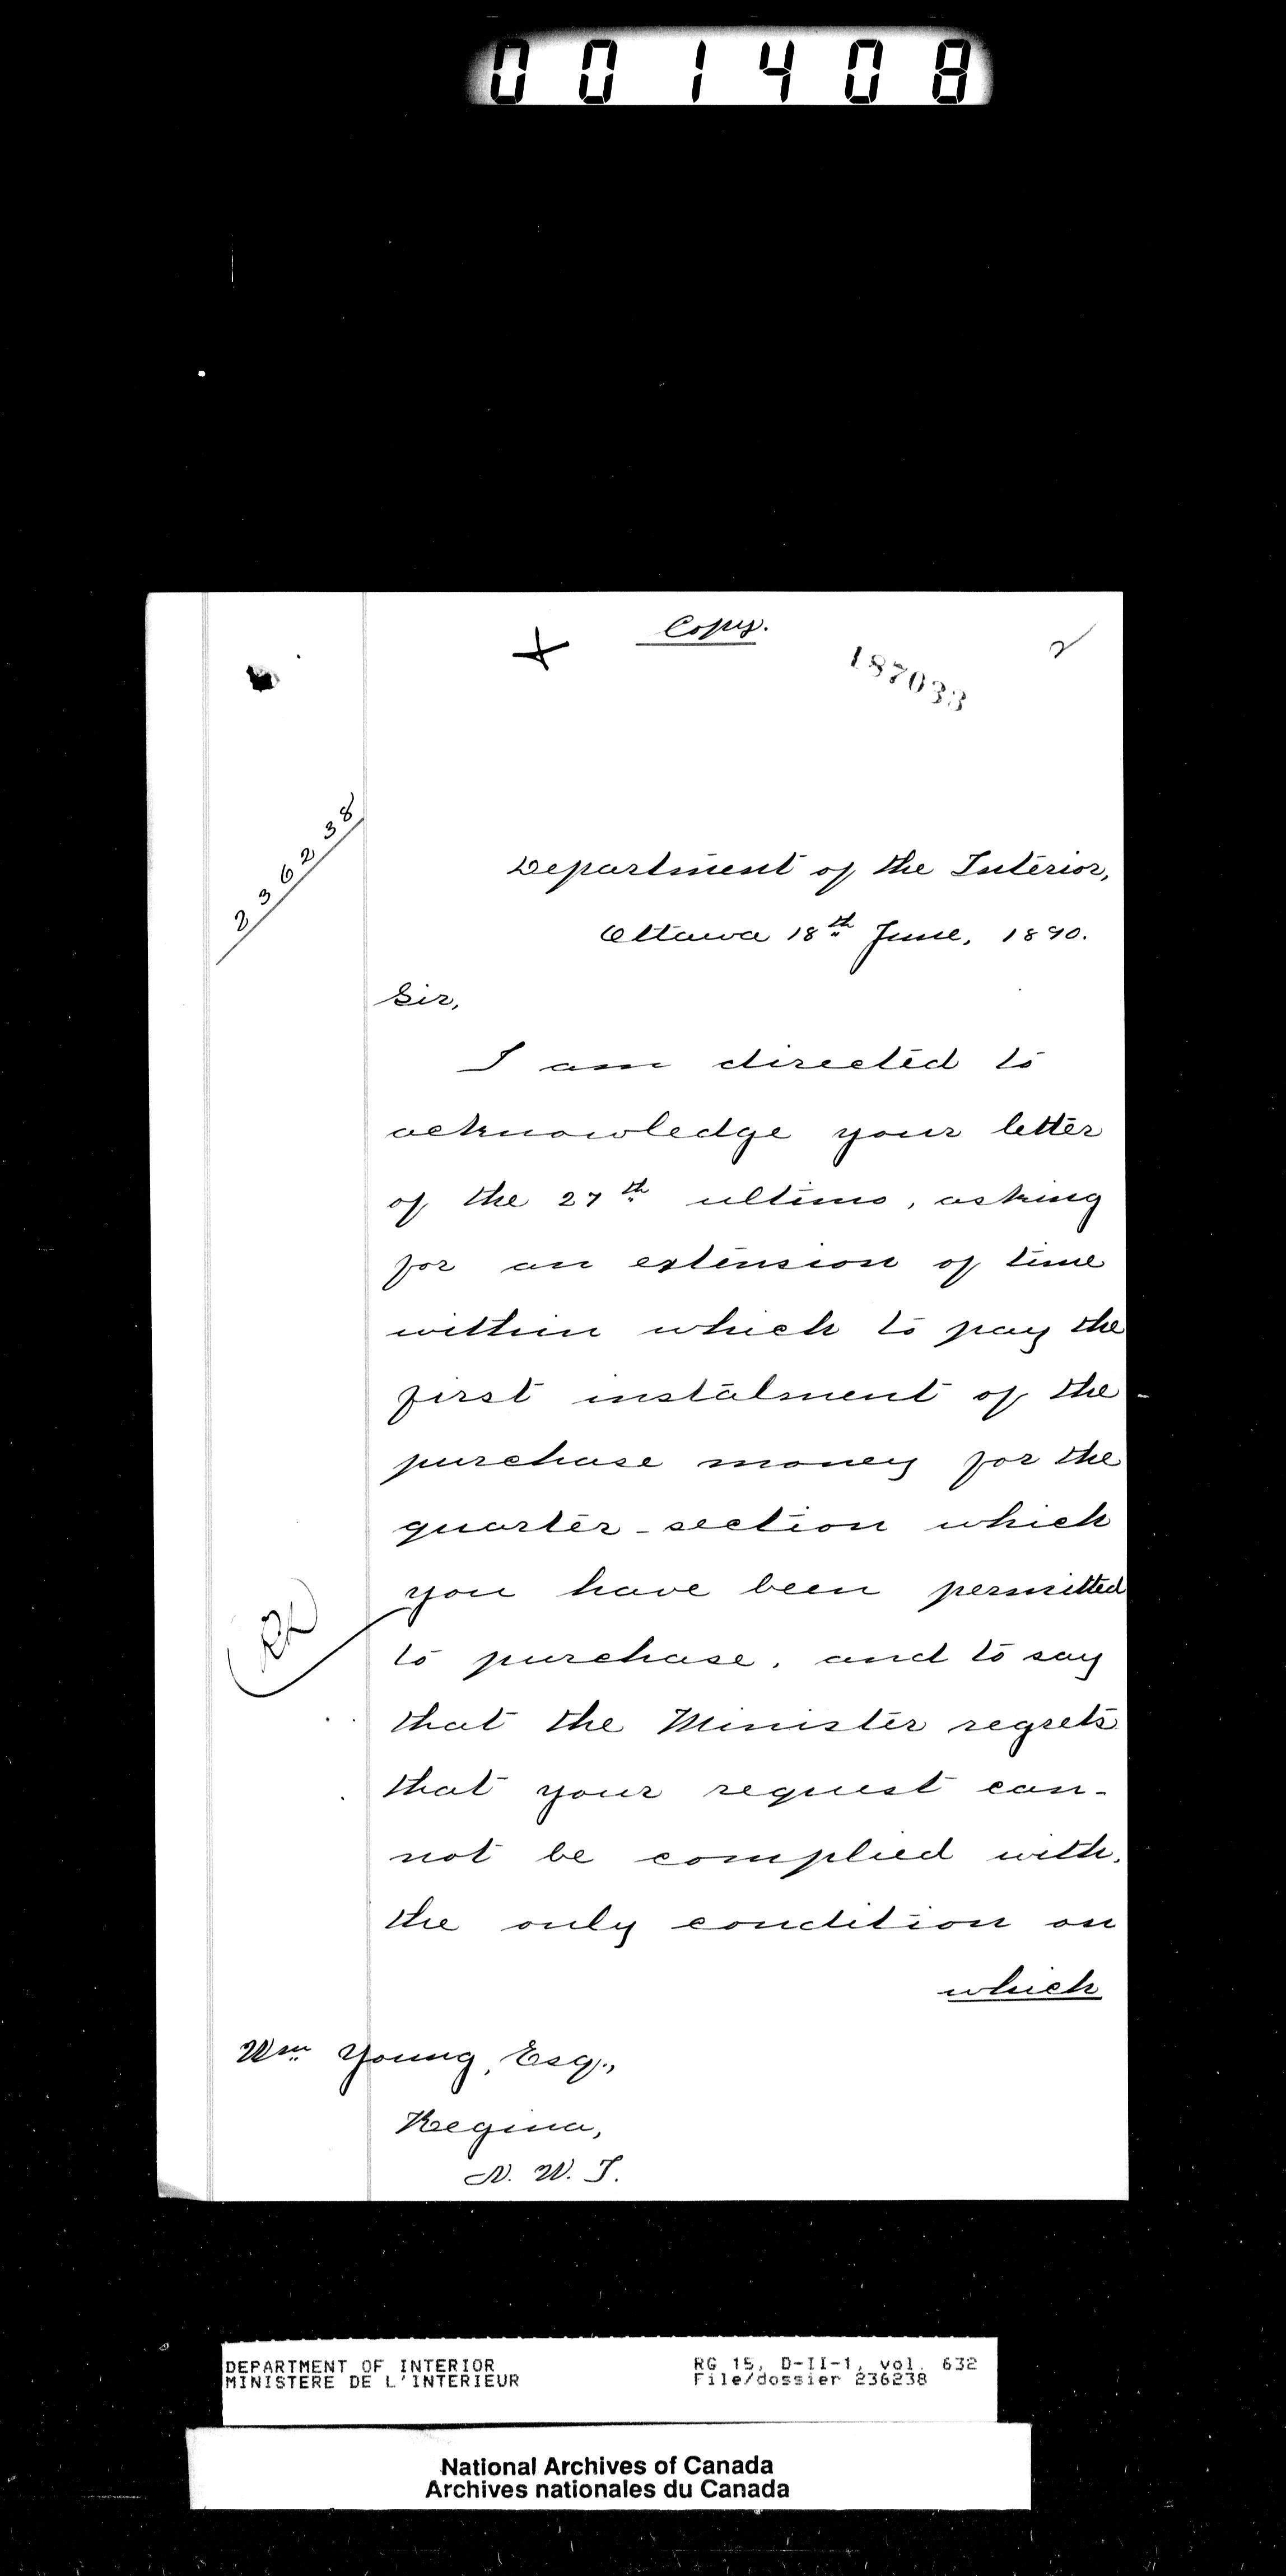 001408
Copy.
187033
2
236238
Department of the Interior,
Ottawa 18th June, 1890.
Sir,
I am directed to
acknowledge your letter
of the 27th ultimo, asking
for an extension of time
within which to pay the
first instalment of the
purchase money for the
quarter-section which
you have been permitted
to purchase, and to say
that the Minister regrets
that your request can-
not be complied with,
the only condition on
which
Wm Young, Esq.,
Regina,
N. W. T.
DEPARTMENT OF INTERIOR
MINISTERE DE L'INTERIEUR
RG 15, D-II-1, vol. 632
File/dossier 236238
National Archives of Canada
Archives nationales du Canada